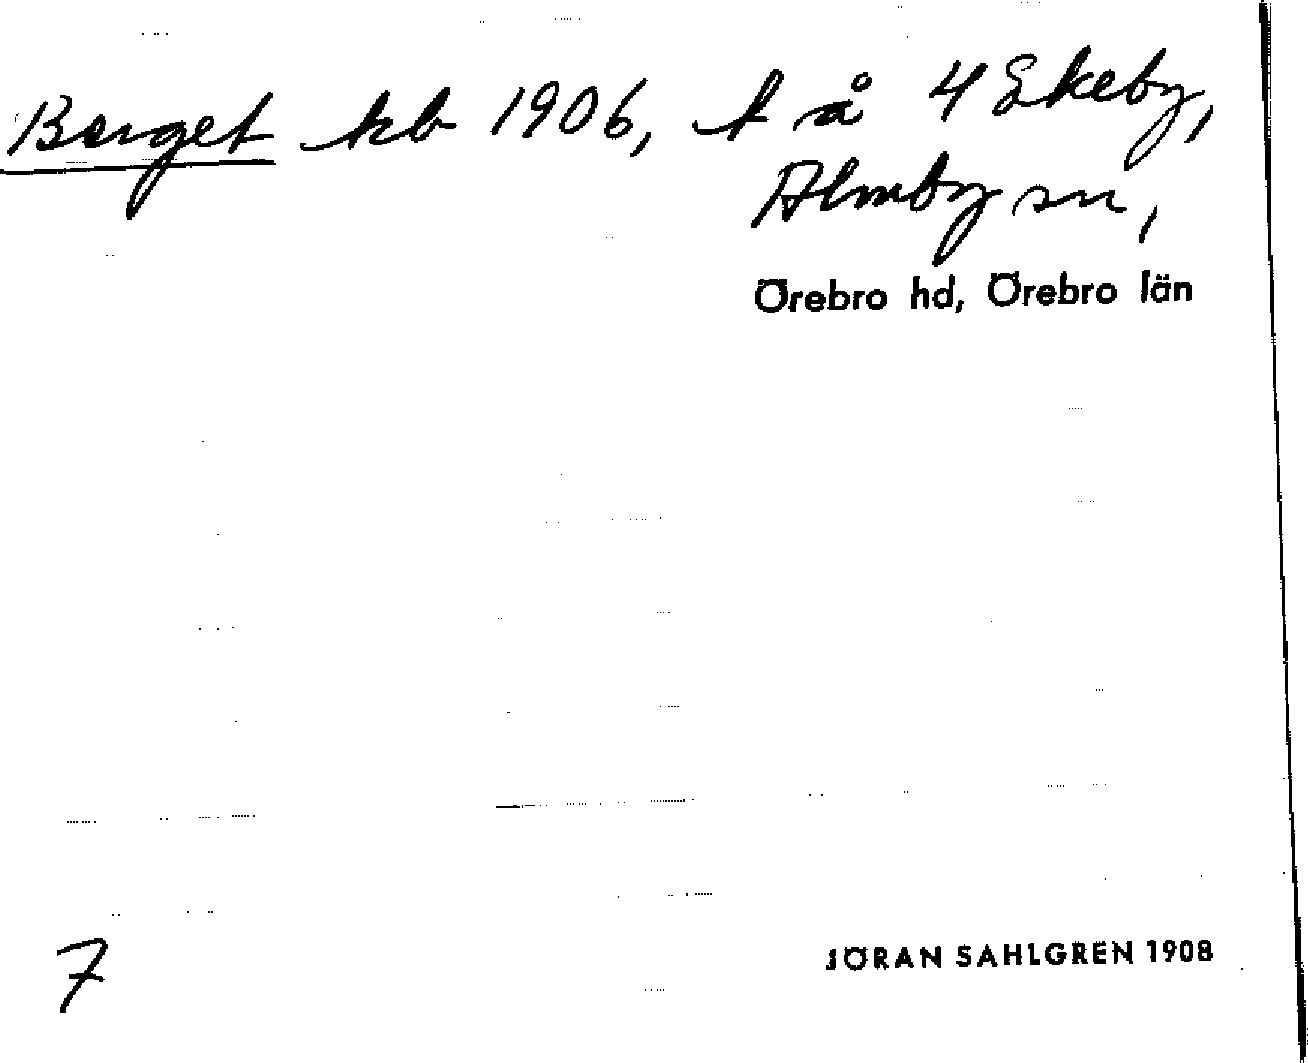 Berget kb 1906, t å 4 Ekeby,
Almby sn,
Örebro hd, Örebro län
7
JÖRAN SAHLGREN 1908